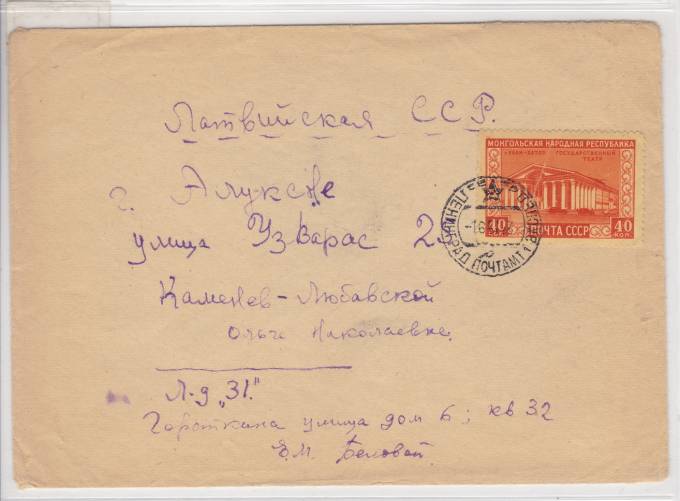 Латвийская ССР.
МОНГОЛЬСКАЯ НАРОДНАЯ РЕСПУБЛИКА
УЛАН-БАТОР ГОСУДАРСТВЕННЫЙ
ТЕАТР
г. Алуксне
40 ПОЧТА СССР 40
КОП.
ЛЕНИНГРАД ПОЧТАМТ 1
улица Узварас
Каменев-Любавской
Ольге Николаевне
Л-д „31."
улица дом 6; кв 32
Е.М. Беловой